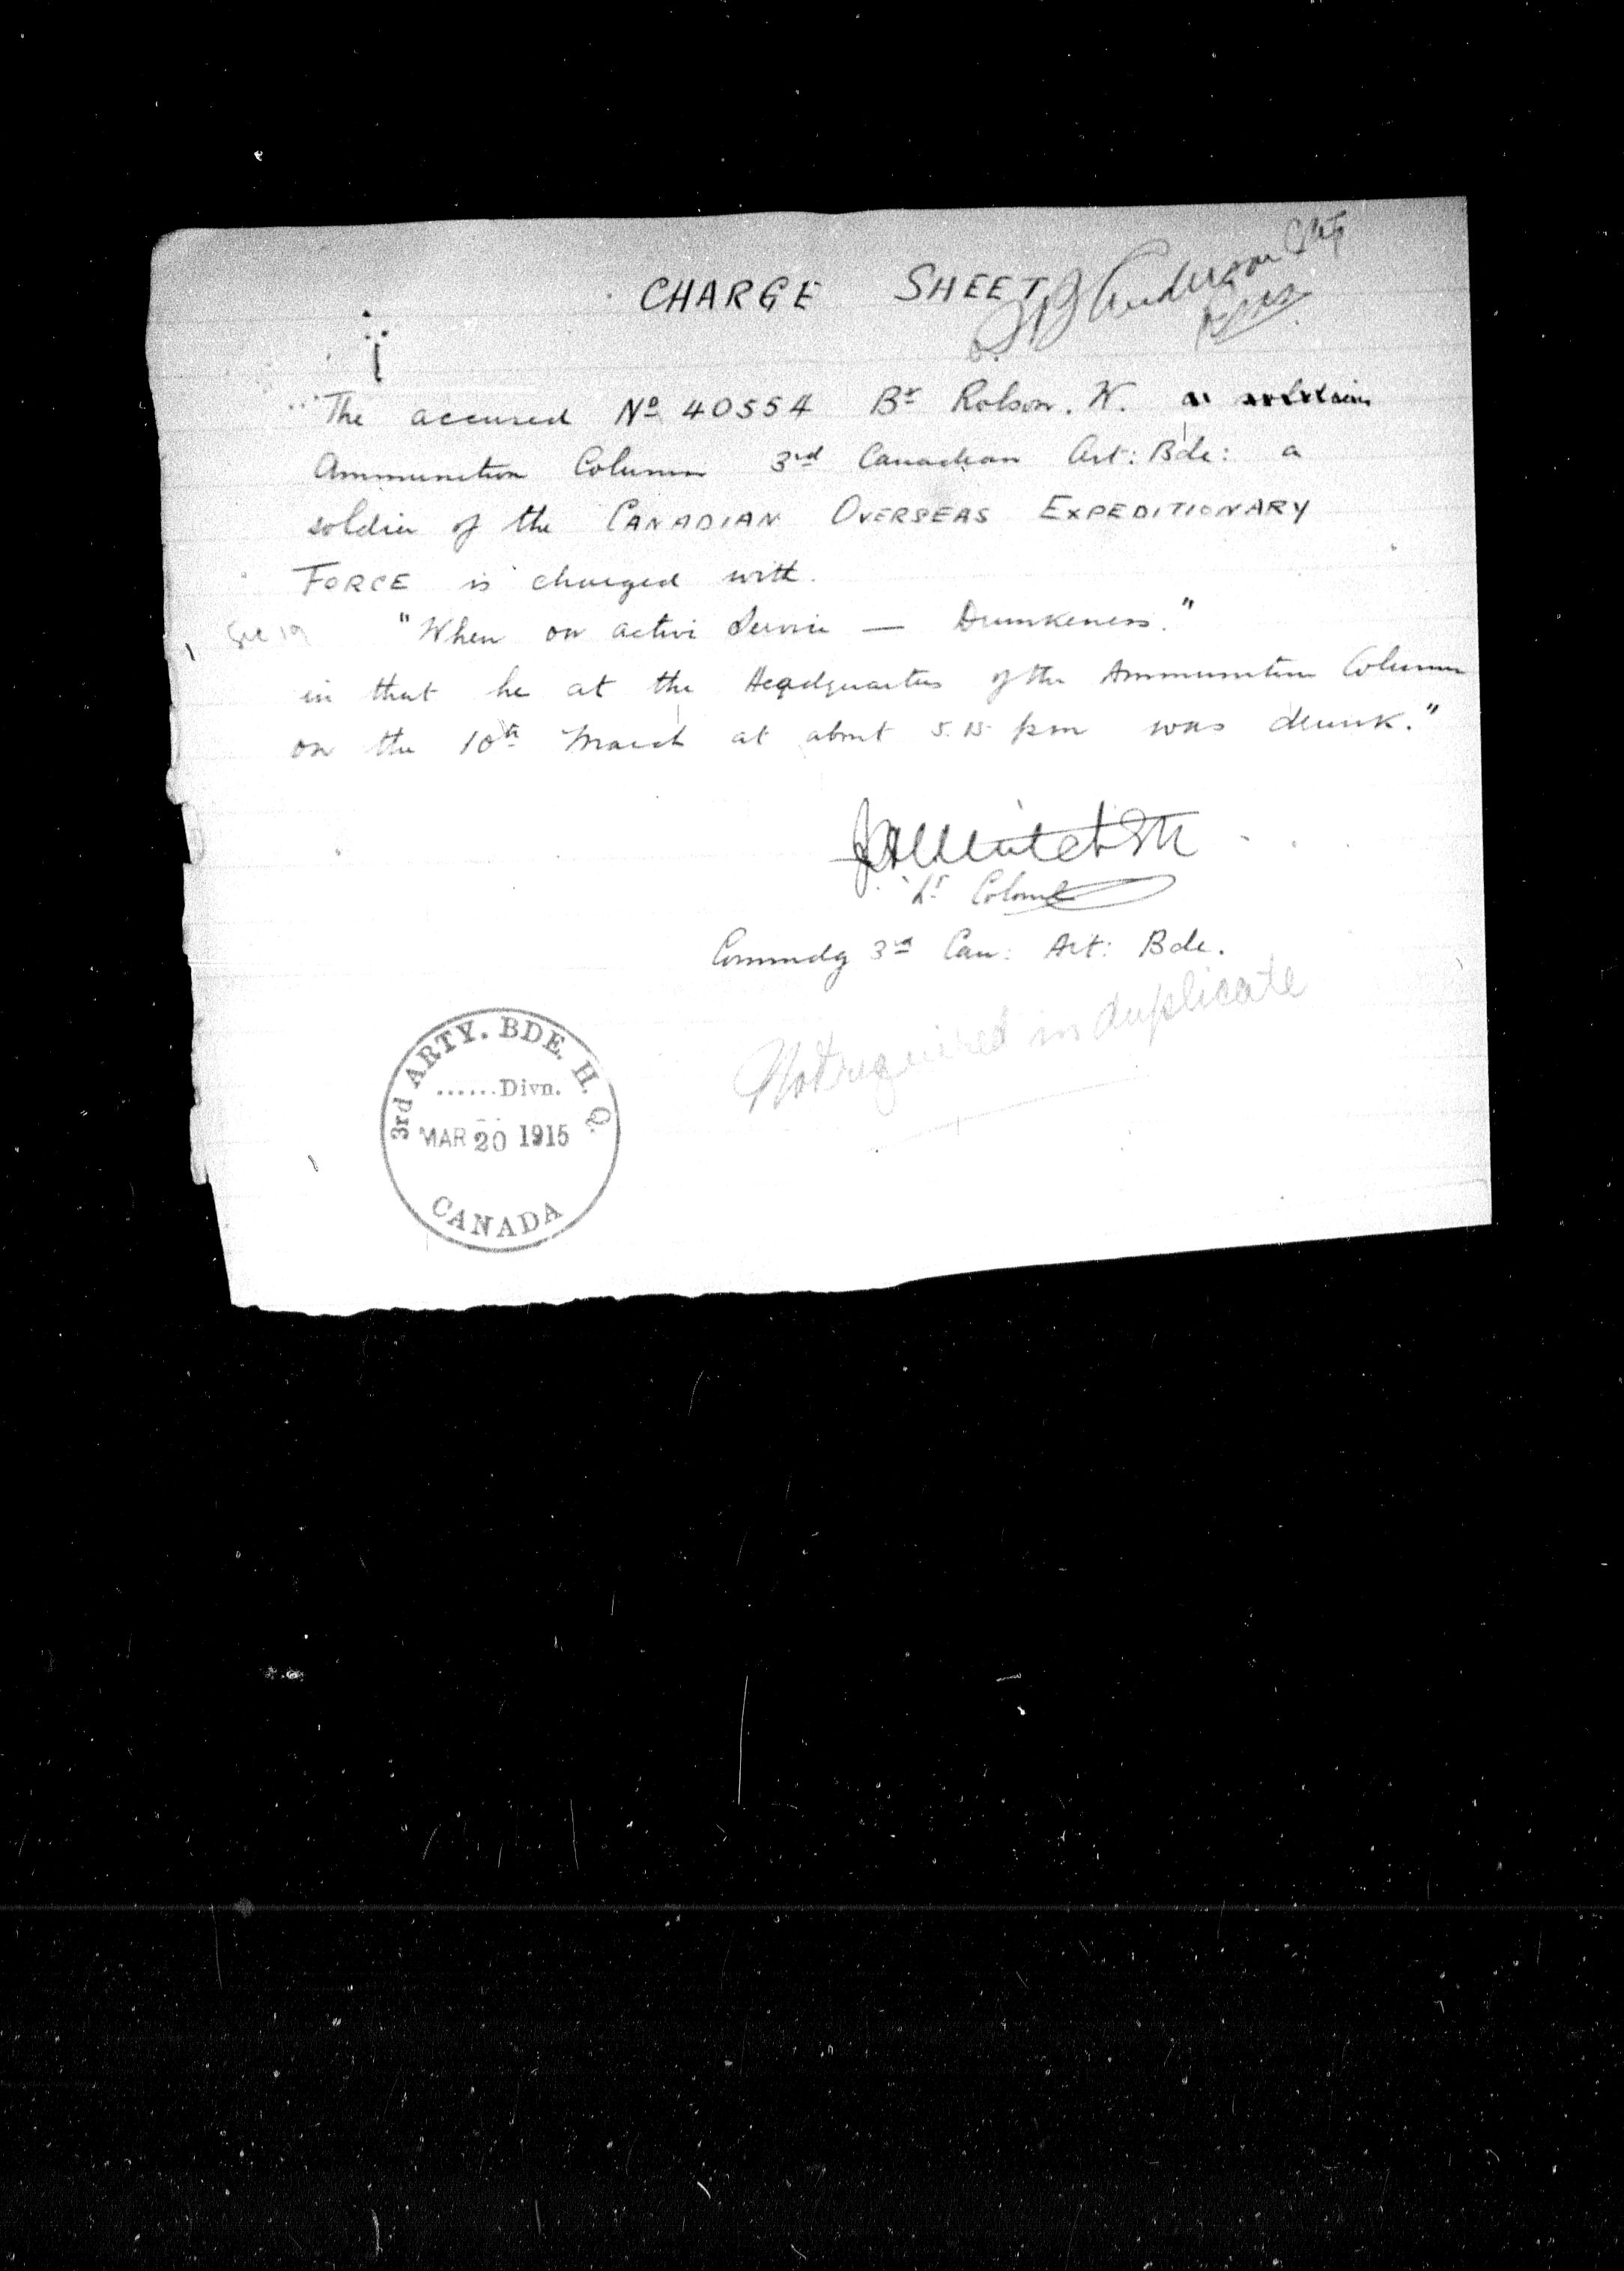 CHARGE SHEET
Anderson Capt
The accused No 40554 Br Robson. W.
Ammunition Column 3rd Canadian Art: Bde: a
soldier of the CANADIAN OVERSEAS EXPEDITIONARY
FORCE is charged with.
Sec 19 "When on active Service — Drunkeness."
in that he at the Headquarters of the Ammunition Column
on the 10th March at about 5.15 pm was drunk."
Lt Colonel
Commdg 3rd Can: Art: Bde.
Not required in duplicate
3rd ARTY. BDE. H. Q.
......Divn.
MAR 20 1915
CANADA